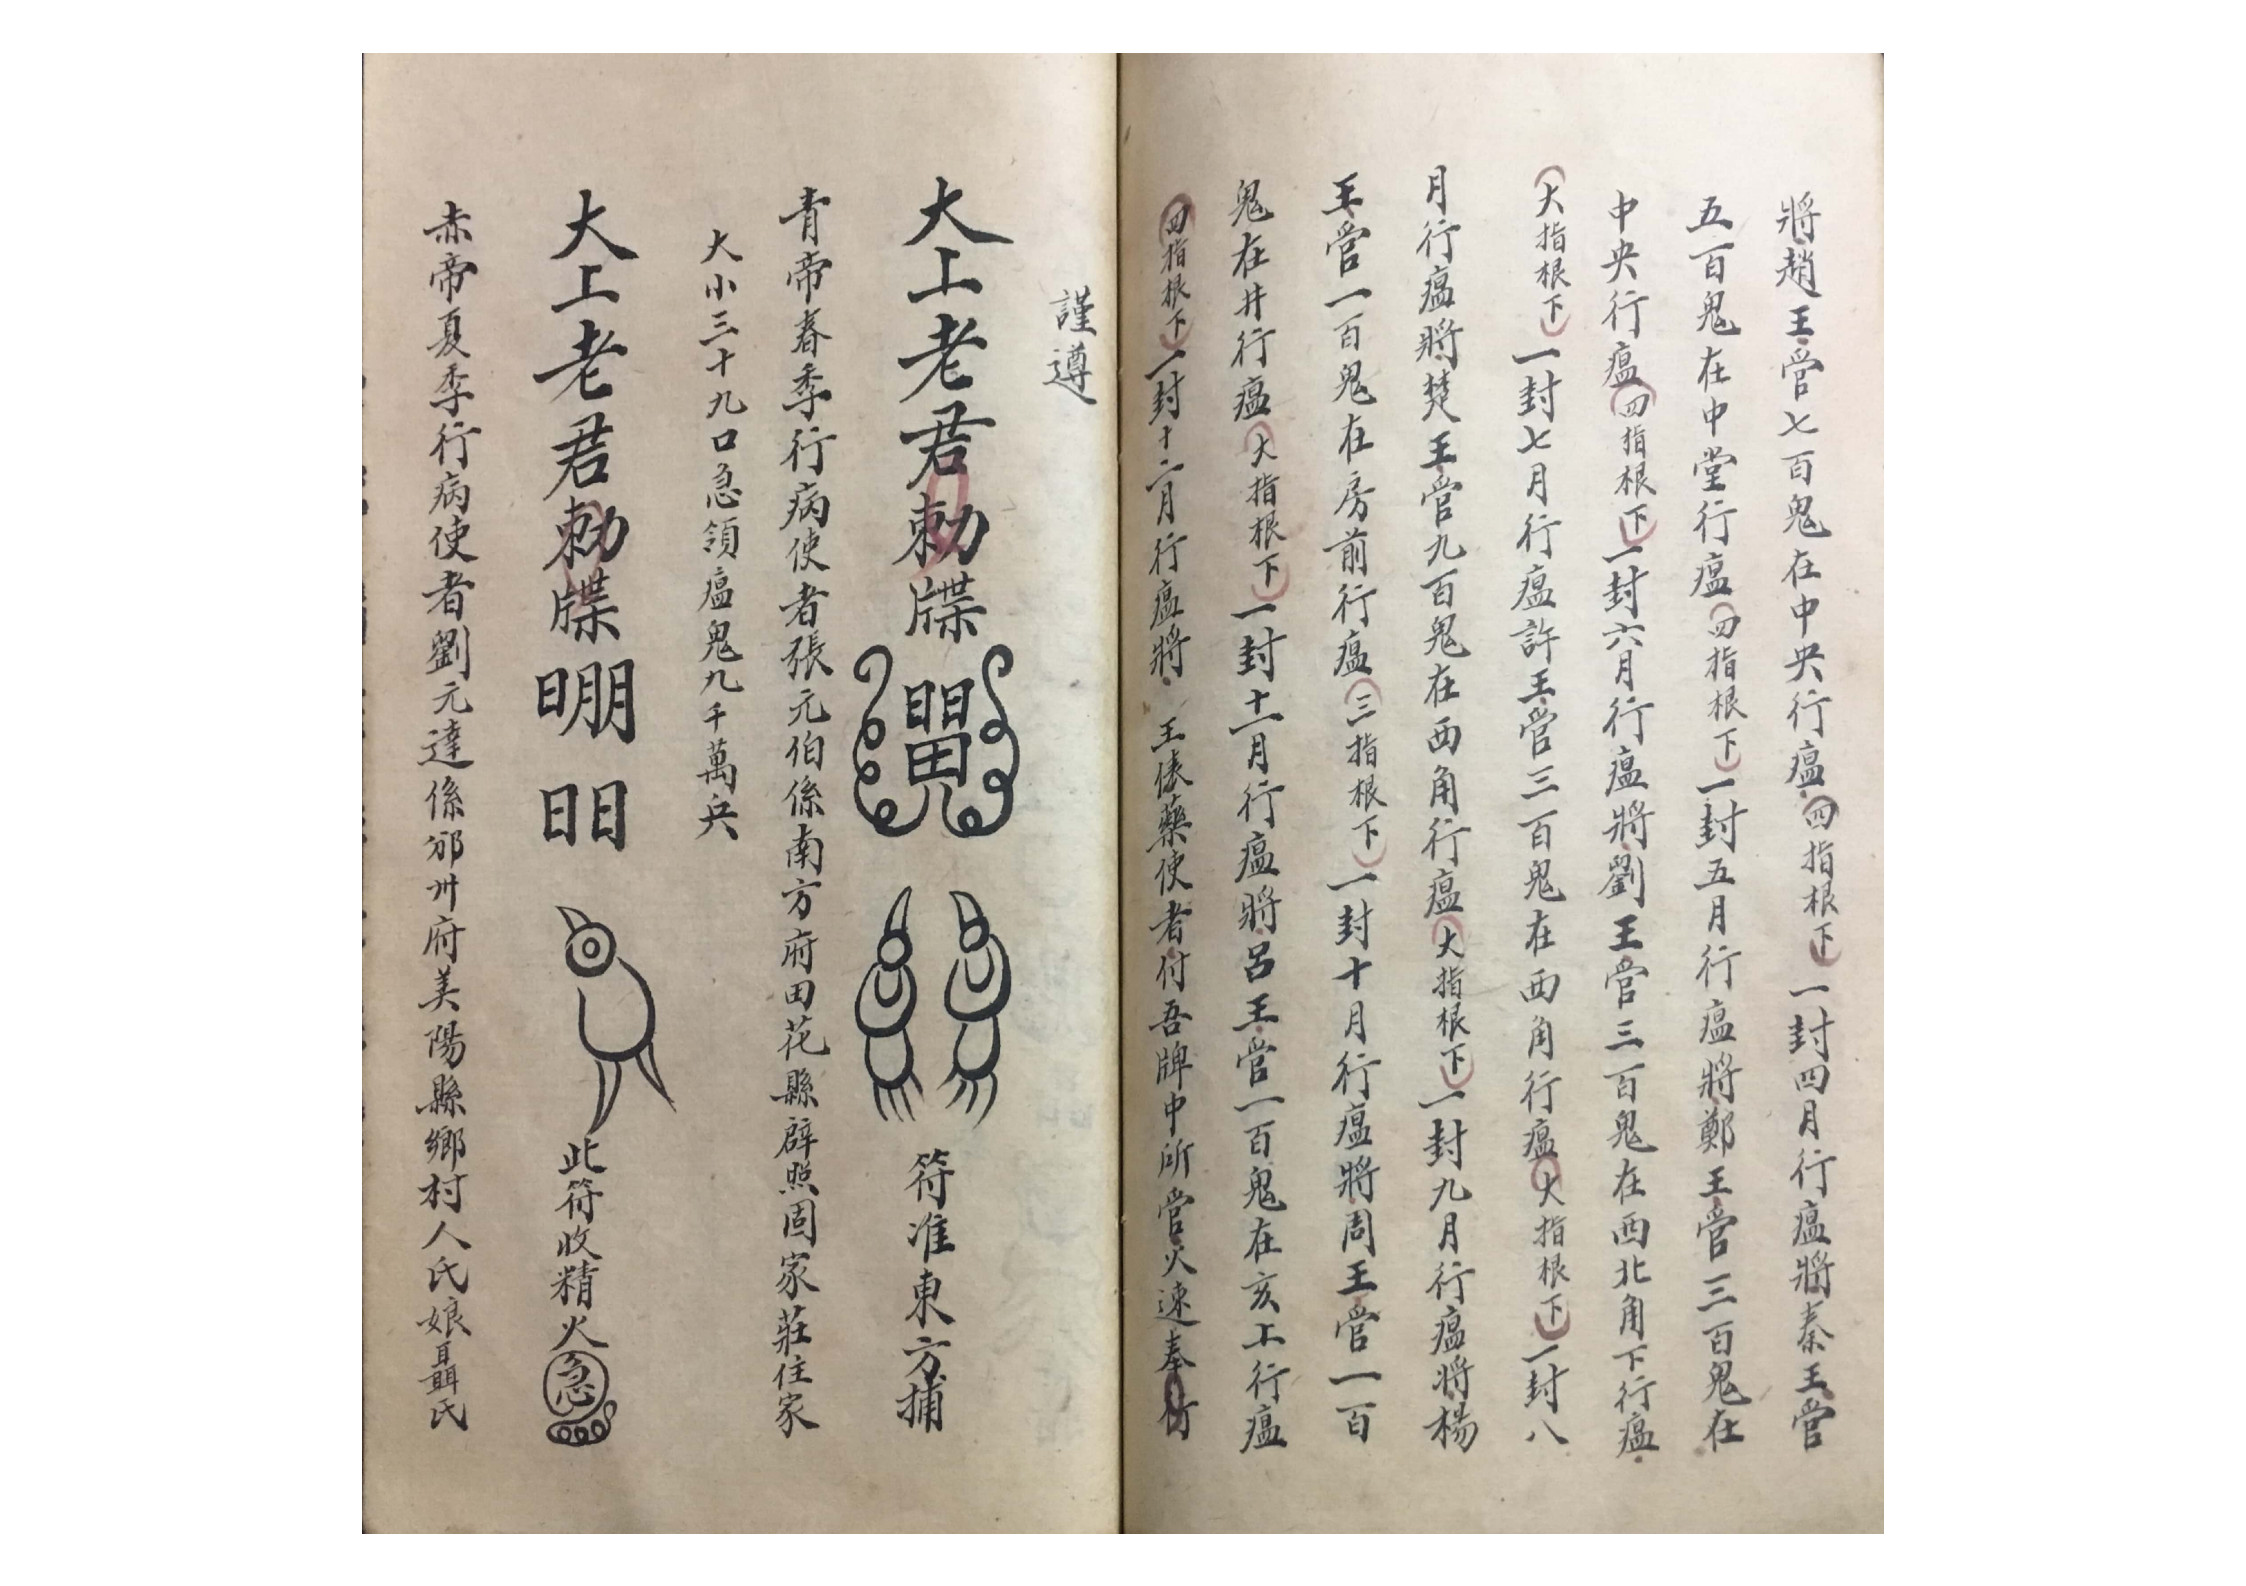 將趙王管七百鬼在中央行瘟四指根下一封四月行瘟將秦王管
五百鬼在中堂行瘟四指根下一封五月行瘟將鄭王管三百鬼在
中央行瘟四指根下一封六月行瘟將劉王管三百鬼在西北角下行瘟
大指根下一封七月行瘟許王管三百鬼在西角行瘟大指根下一封八
月行瘟將楚王管九百鬼在西角行瘟大指根下一封九月行瘟將楊
王管一百鬼在房前行瘟三指根下一封十月行瘟將周王管一百
鬼在井行瘟大指根下一封十一月行瘟將呂王管一百鬼在亥上行瘟
四指根下一封十二月行瘟將王俵藥使者付吾牌中所管火速奉行
謹遵
大上老君勅牒 符准東方捕
青帝春季行病使者張元伯係南方府田花縣辟照固家莊住家
大小三十九口急領瘟鬼九千萬兵
大上老君勅牒 此符收精火急
赤帝夏季行病使者劉元達係邠州府美陽縣鄉村人氏娘聶氏